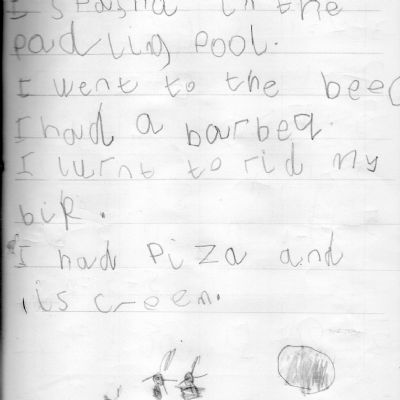 I spasha in the
padling pool.
I went to the beec
I had a barbeq.
I lurnt to rid my
bik.
I had Piza and
is creem.